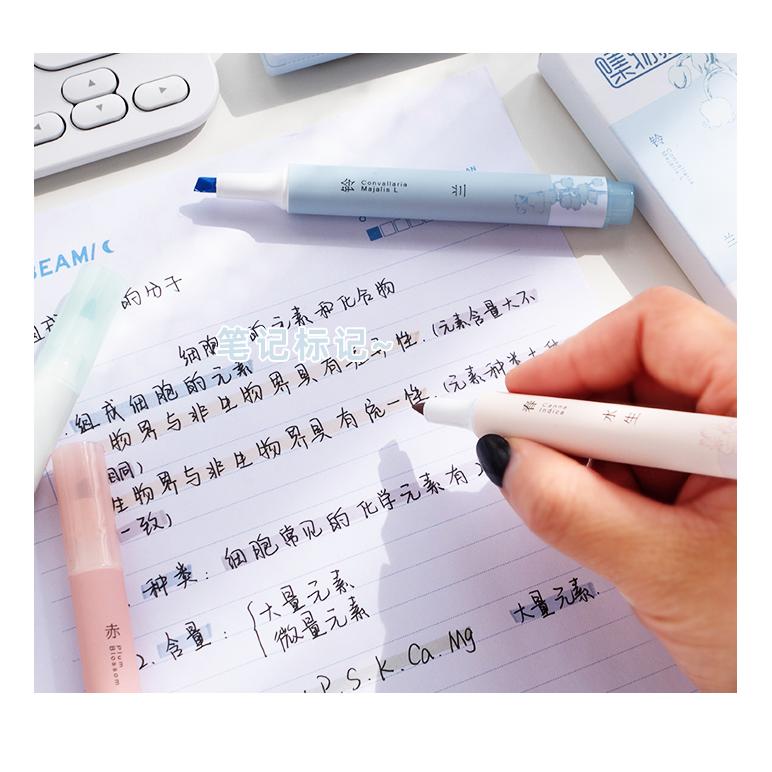 集物
铃
Convallaria
Majalis L
兰
铃
Convallaria
Majalis L
兰
BEAM/
的分子
细胞 的元素和化合物
笔记标记~
组成细胞的元素
物界与非生物界具有 性.(元素含量大不
同)
生物界与非生物界具有统一性.(元素种类大
一致)
春
Canna
Indica
水生
种类: 细胞常见的化学元素有
2. 含量: { 大量元素
微量元素
大量元素.
P. S. K. Ca. Mg
赤
Plum
Blossom